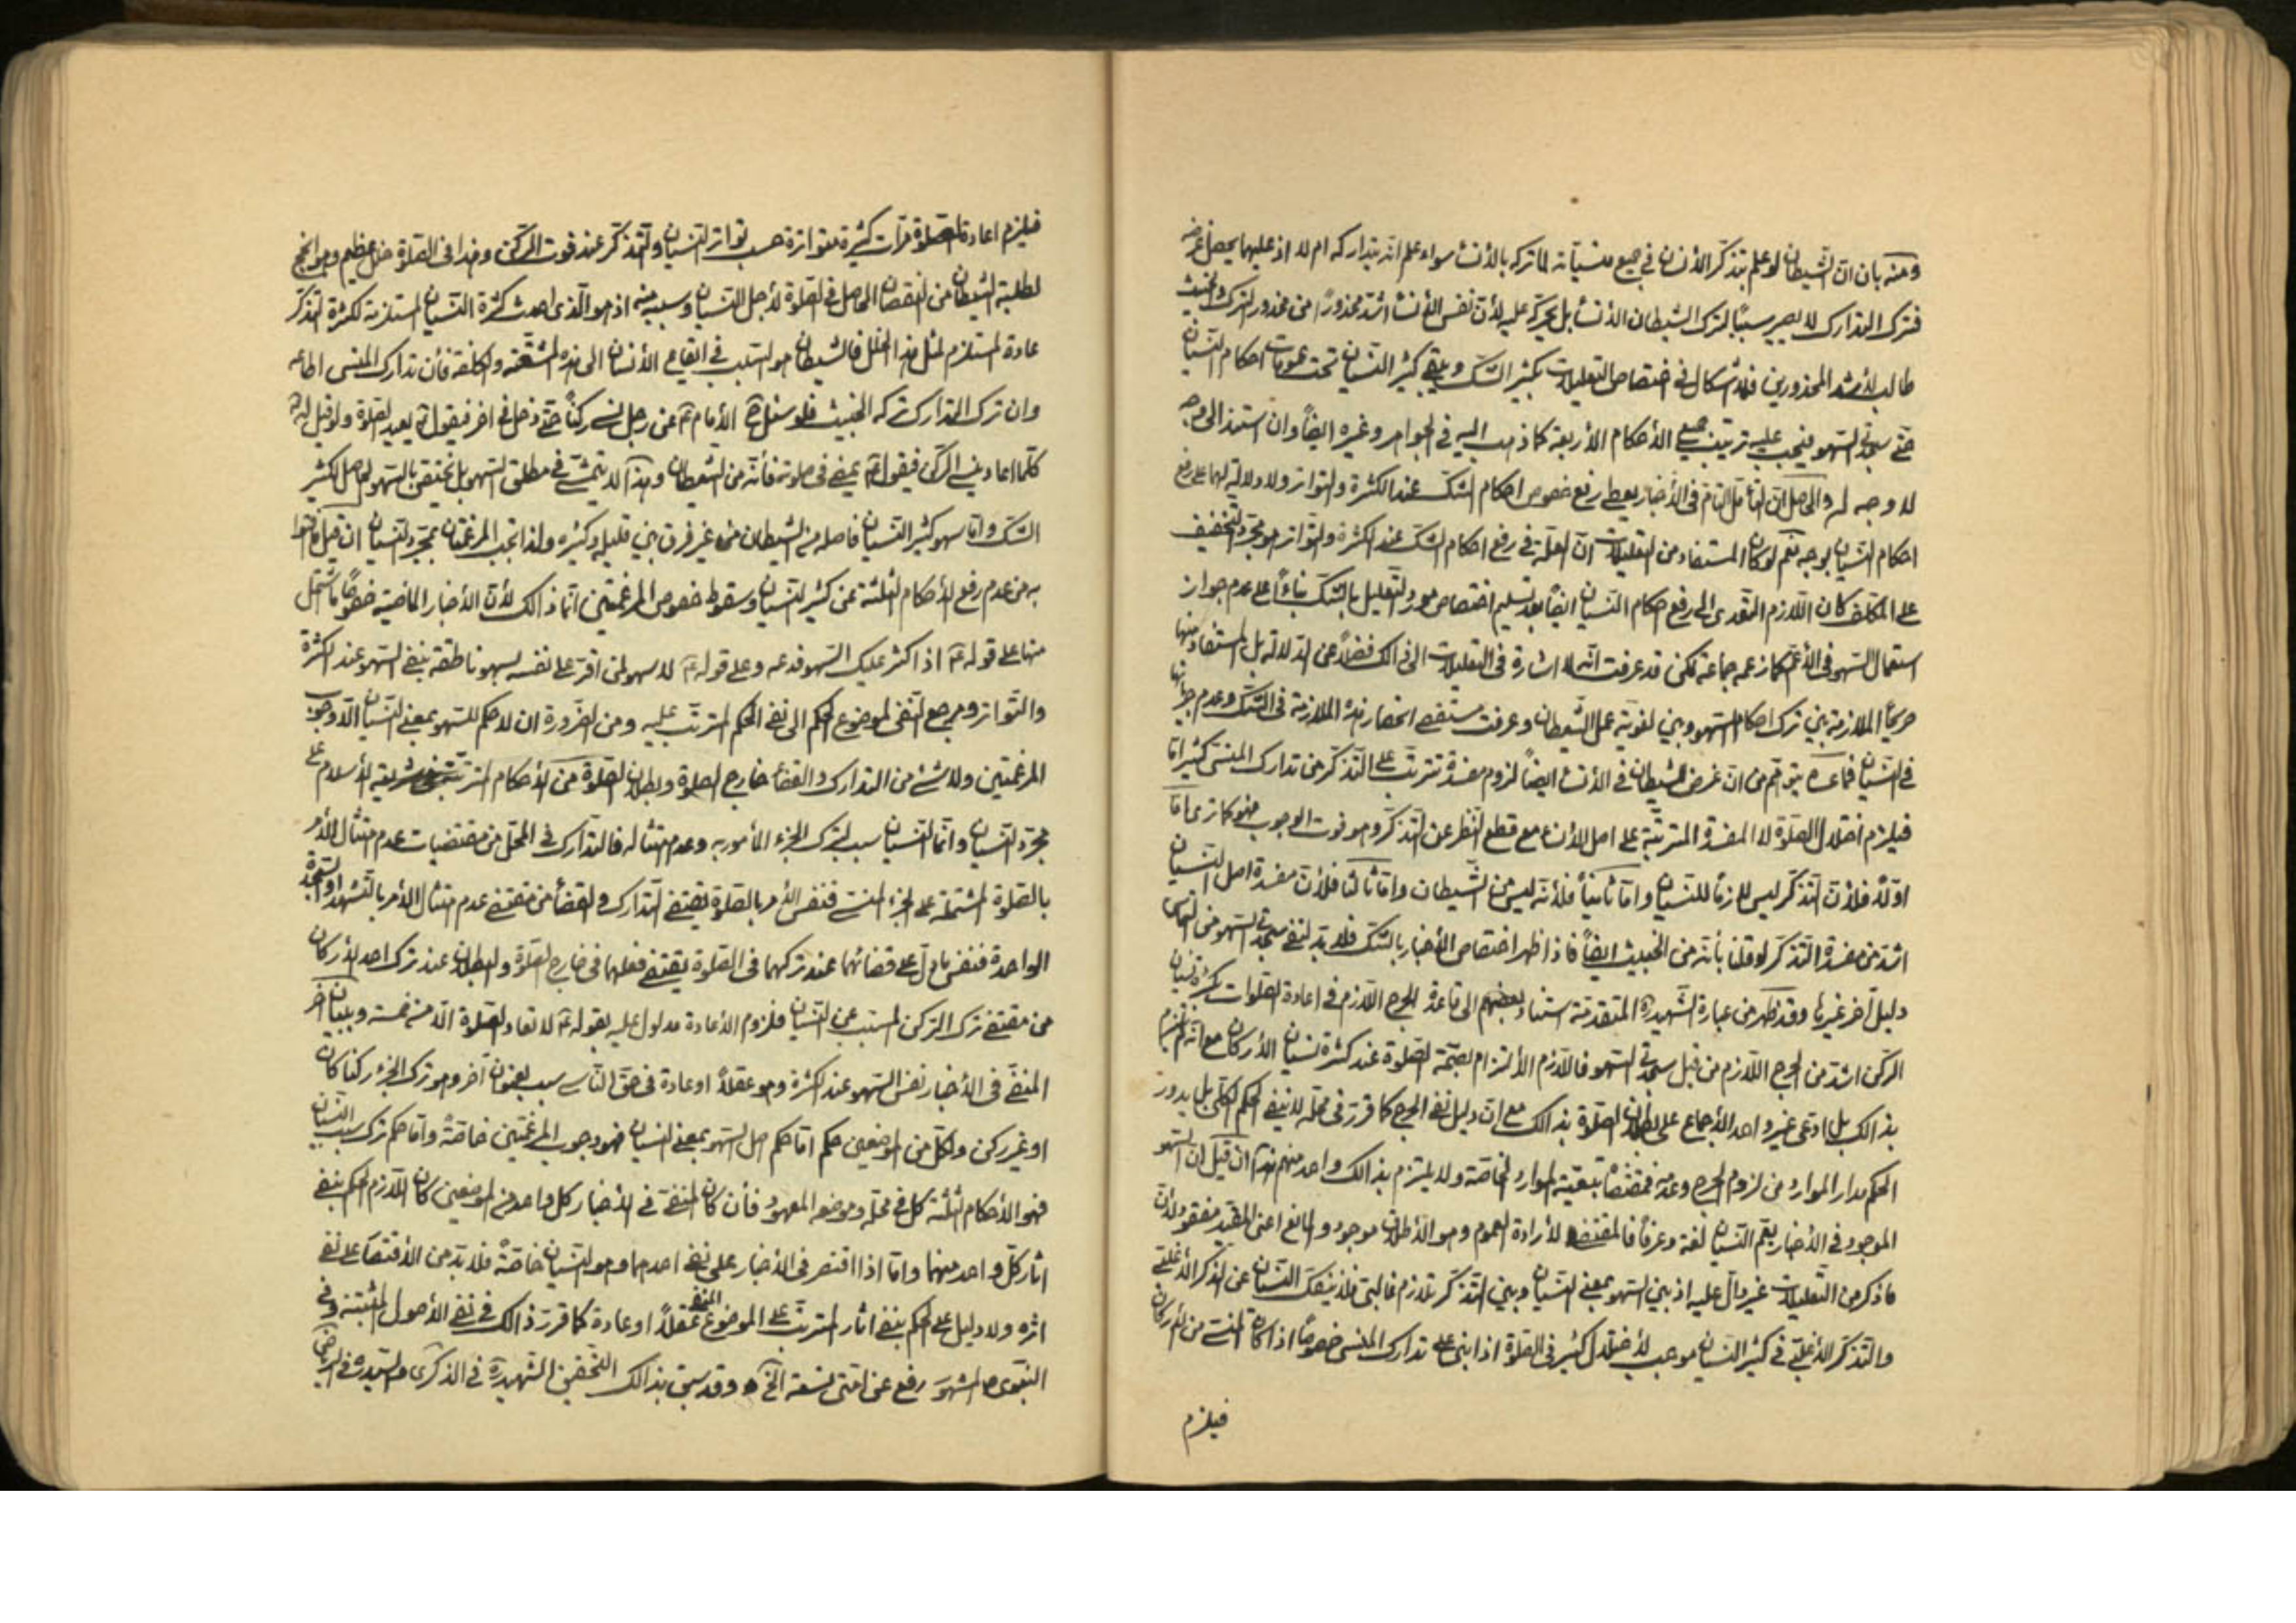 ومنه بان ان الشيطان لو علم بتذكر الأنسان في جميع منسياته لما تركه بالأنساء سواء علم انه يتداركه ام لا اذ عليهما يحصل غرضه
فترك التدارك لا يصير سببًا لترك الشيطان الأنساء بل يحرّكه عليه لأن نفس الأنساء اشد محذورًا من محذور الترك والخبيث
طالب لأشد المحذورين فلا اشكال في اختصاص التعليلات بكثير الشك ويبقى كثير النسيان تحت عمومات احكام النسيان
حتى سجدتي السهو فيجب عليه ترتيب جميع الأحكام الأربعة كما ذهب اليه في الجواهر وغيره ايضًا وان استند الى وجه
لا وجه له والحاصل ان التأمل التام في الأخبار يعطى رفع خصوص احكام الشك عند الكثرة والتواتر ولا دلالة لها على رفع
احكام النسيان بوجه نعم لو كان المستفاد من التعليلات ان العلة في رفع احكام الشك عند الكثرة والتواتر هو مجرد التخفيف
على المكلف كان اللازم التعدى الى رفع احكام النسيان ايضًا بعد تسليم اختصاص مورد التعليل بالشك بناءًا على عدم جواز
استعمال السهو في الأعم كما زعمه جماعة لكن قد عرفت انه لا اشارة في التعليلات الى ذالك فضلًا عن الدلالة بل المستفاد منها
صريحًا الملازمة بين ترك احكام السهو وبين لغوية عمل الشيطان وعرفت مستقصى انحصار هذه الملازمة في الشك وعدم جريانها
في النسيان فما عساه يتوهم من ان غرض الشيطان في الأنساء ايضًا لزوم مفسدة تترتب على التذكر من تدارك المنسى كثيرا
فيلزم اختلال الصلوة لا المفسدة المترتبة على اصل الأنساء مع قطع النظر عن التذكر وهو فوت الوجوب فهو كما ترى اما
اولًا فلأن التذكر ليس لازمًا للنسيان واما ثانيًا فلأنه ليس من الشيطان واما ثالثًا فلأن مفسدة اصل النسيان
اشد من مفسدة التذكر لو قلنا بأنه من الخبيث ايضًا فاذا ظهر اختصاص الأخبار بالشك فلا بد لنفى سجدتي السهو من التماس
دليل آخر غيرها وقد ظهر من عبارة الشهيد ره المتقدمة استناد بعضهم الى قاعدة الحرج اللازم في اعادة الصلوات بكثرة نسيان
الركن اشد من الحرج اللازم من قبل سجدتي السهو فاللازم الألتزام بصحة الصلوة عند كثرة نسيان الأركان مع انه لم يلتزم
بذالك بل ادعى غير واحد الأجماع على بطلان الصلوة بذالك مع ان دليل نفى الحرج كما قرر في محله لا ينفى الحكم الكلى بل يدور
الحكم مدار الموارد من لزوم الحرج وعدمه فمقتضاه تبعية الموارد الخاصة ولا يلتزم بذالك واحد منهم هذا ان قيل ان السهو
الموجود في الأخبار يعم النسيان لغة وعرفًا فالمقتضى لأرادة العموم وهو الأطلاق موجود والمانع اعنى المقيد مفقود لأن
ما ذكر من التعليلات غير دال عليه اذ بين السهو بمعنى النسيان وبين التذكر تلازم غالبى فلا ينفك النسيان عن الذكر الا غلبى
والتذكر الأغلبى في كثير النسيان موجب لأختلال كثير في الصلوة اذا بنى على تدارك المنسى خصوصًا اذا كان المنسى من الأركان
فيلزم
فيلزم اعادة الصلوة مرات كثيرة متواترة حسب تواتر النسيان والتذكر عند فوت الركن وهذا في الصلوة خلل عظيم وهو انجح
لطلبة الشيطان من النقصان الحاصل في الصلوة لأجل النسيان وسببه منه اذ هو الذى احدث كثرة النسيان المستلزمة لكثرة التذكر
عادة المستلزم لمثل هذا الخلل فالشيطان هو السبب في ايقاع الأنسان الى هذه المشقة والكلفة فأن تدارك المنسى اطاعه
وان ترك التدارك تركه الخبيث فلو سئل الأمام ع عن رجل نسى ركنًا حتى دخل في اخر فيقول ع يعيد الصلوة ولو قيل له
كلما اعاد نسى الركن فيقول ع يمضى في صلوته فأنه من الشيطان وهذا لا يتمشى في مطلق السهو بل يختص بالسهو الحاصل لكثير
الشك واما سهو كثير النسيان فاصله من الشيطان من غير فرق بين قليله وكثيره ولذا تجب المرغمتان بمجرد النسيان ان قيل فالتزموا
به من عدم رفع الأحكام الثلثة عن كثير النسيان وسقوط خصوص المرغمتين انما ذالك لأن الأخبار الماضية خصوصًا ما اشتمل
منها على قوله ع اذا كثر عليك السهو فدعه وعلى قوله ع لا سهو لمن اقر على نفسه بسهو ناطقة بنفى السهو عند الكثرة
والتواتر ومرجع النفى لموضوع الحكم الى نفى الحكم المترتب عليه ومن الضرورة ان لا حكم للسهو بمعنى النسيان الا وجوب
المرغمتين ولا شئ من التدارك والقضاء خارج الصلوة وبطلان الصلوة من الأحكام المترتبة في شريعة الأسلام على
مجرد النسيان وانما النسيان سبب لترك الجزء المأمور به وعدم امتثاله فالتدارك في المحل من مقتضيات عدم امتثال الأمر
بالصلوة المشتملة على الجزء المنسى فنفس الأمر بالصلوة يقتضى التدارك والقضاء من مقتضى عدم امتثال الأمر بالتشهد او السجدة
الواحدة فنفس ما دل على قضائهما عند تركهما في الصلوة يقتضى فعلهما في خارج الصلوة والبطلان عند ترك احد الأركان
من مقتضى ترك الركن المسبب عن النسيان فلزوم الأعادة مدلول عليه بقوله ع لا تعاد الصلوة الا من خمسة وببيان آخر
المنفى في الأخبار نفس السهو عند الكثرة وهو عقلًا او عادة في حق الناسى سبب لعنوان آخر وهو ترك الجزء ركنًا كان
او غير ركن ولكل من الموضعين حكم اما حكم اصل السهو بمعنى النسيان فهو وجوب المرغمتين خاصة واما حكم ترك سبب النسيان
فهو الأحكام الثلثة كل في محله وموضعه المعهود فأن كان المنفى في الأخبار كل واحد من الموضعين كان اللازم الحكم بنفى
اثار كل واحد منهما واما اذا اقتصر في الأخبار على نفى احدهما وهو النسيان خاصة فلا بد من الأقتصار على نفى
اثره ولا دليل على الحكم بنفى اثار المترتب على الموضوع المنفى عقلًا او عادة كما قرر ذالك في نفى الأصول المثبتة وفى
النبوى المشهور رفع عن امتى تسعة الخ وقد سبق بذالك التحقيق الشهيد ره في الذكرى والسيد ره في الرياض